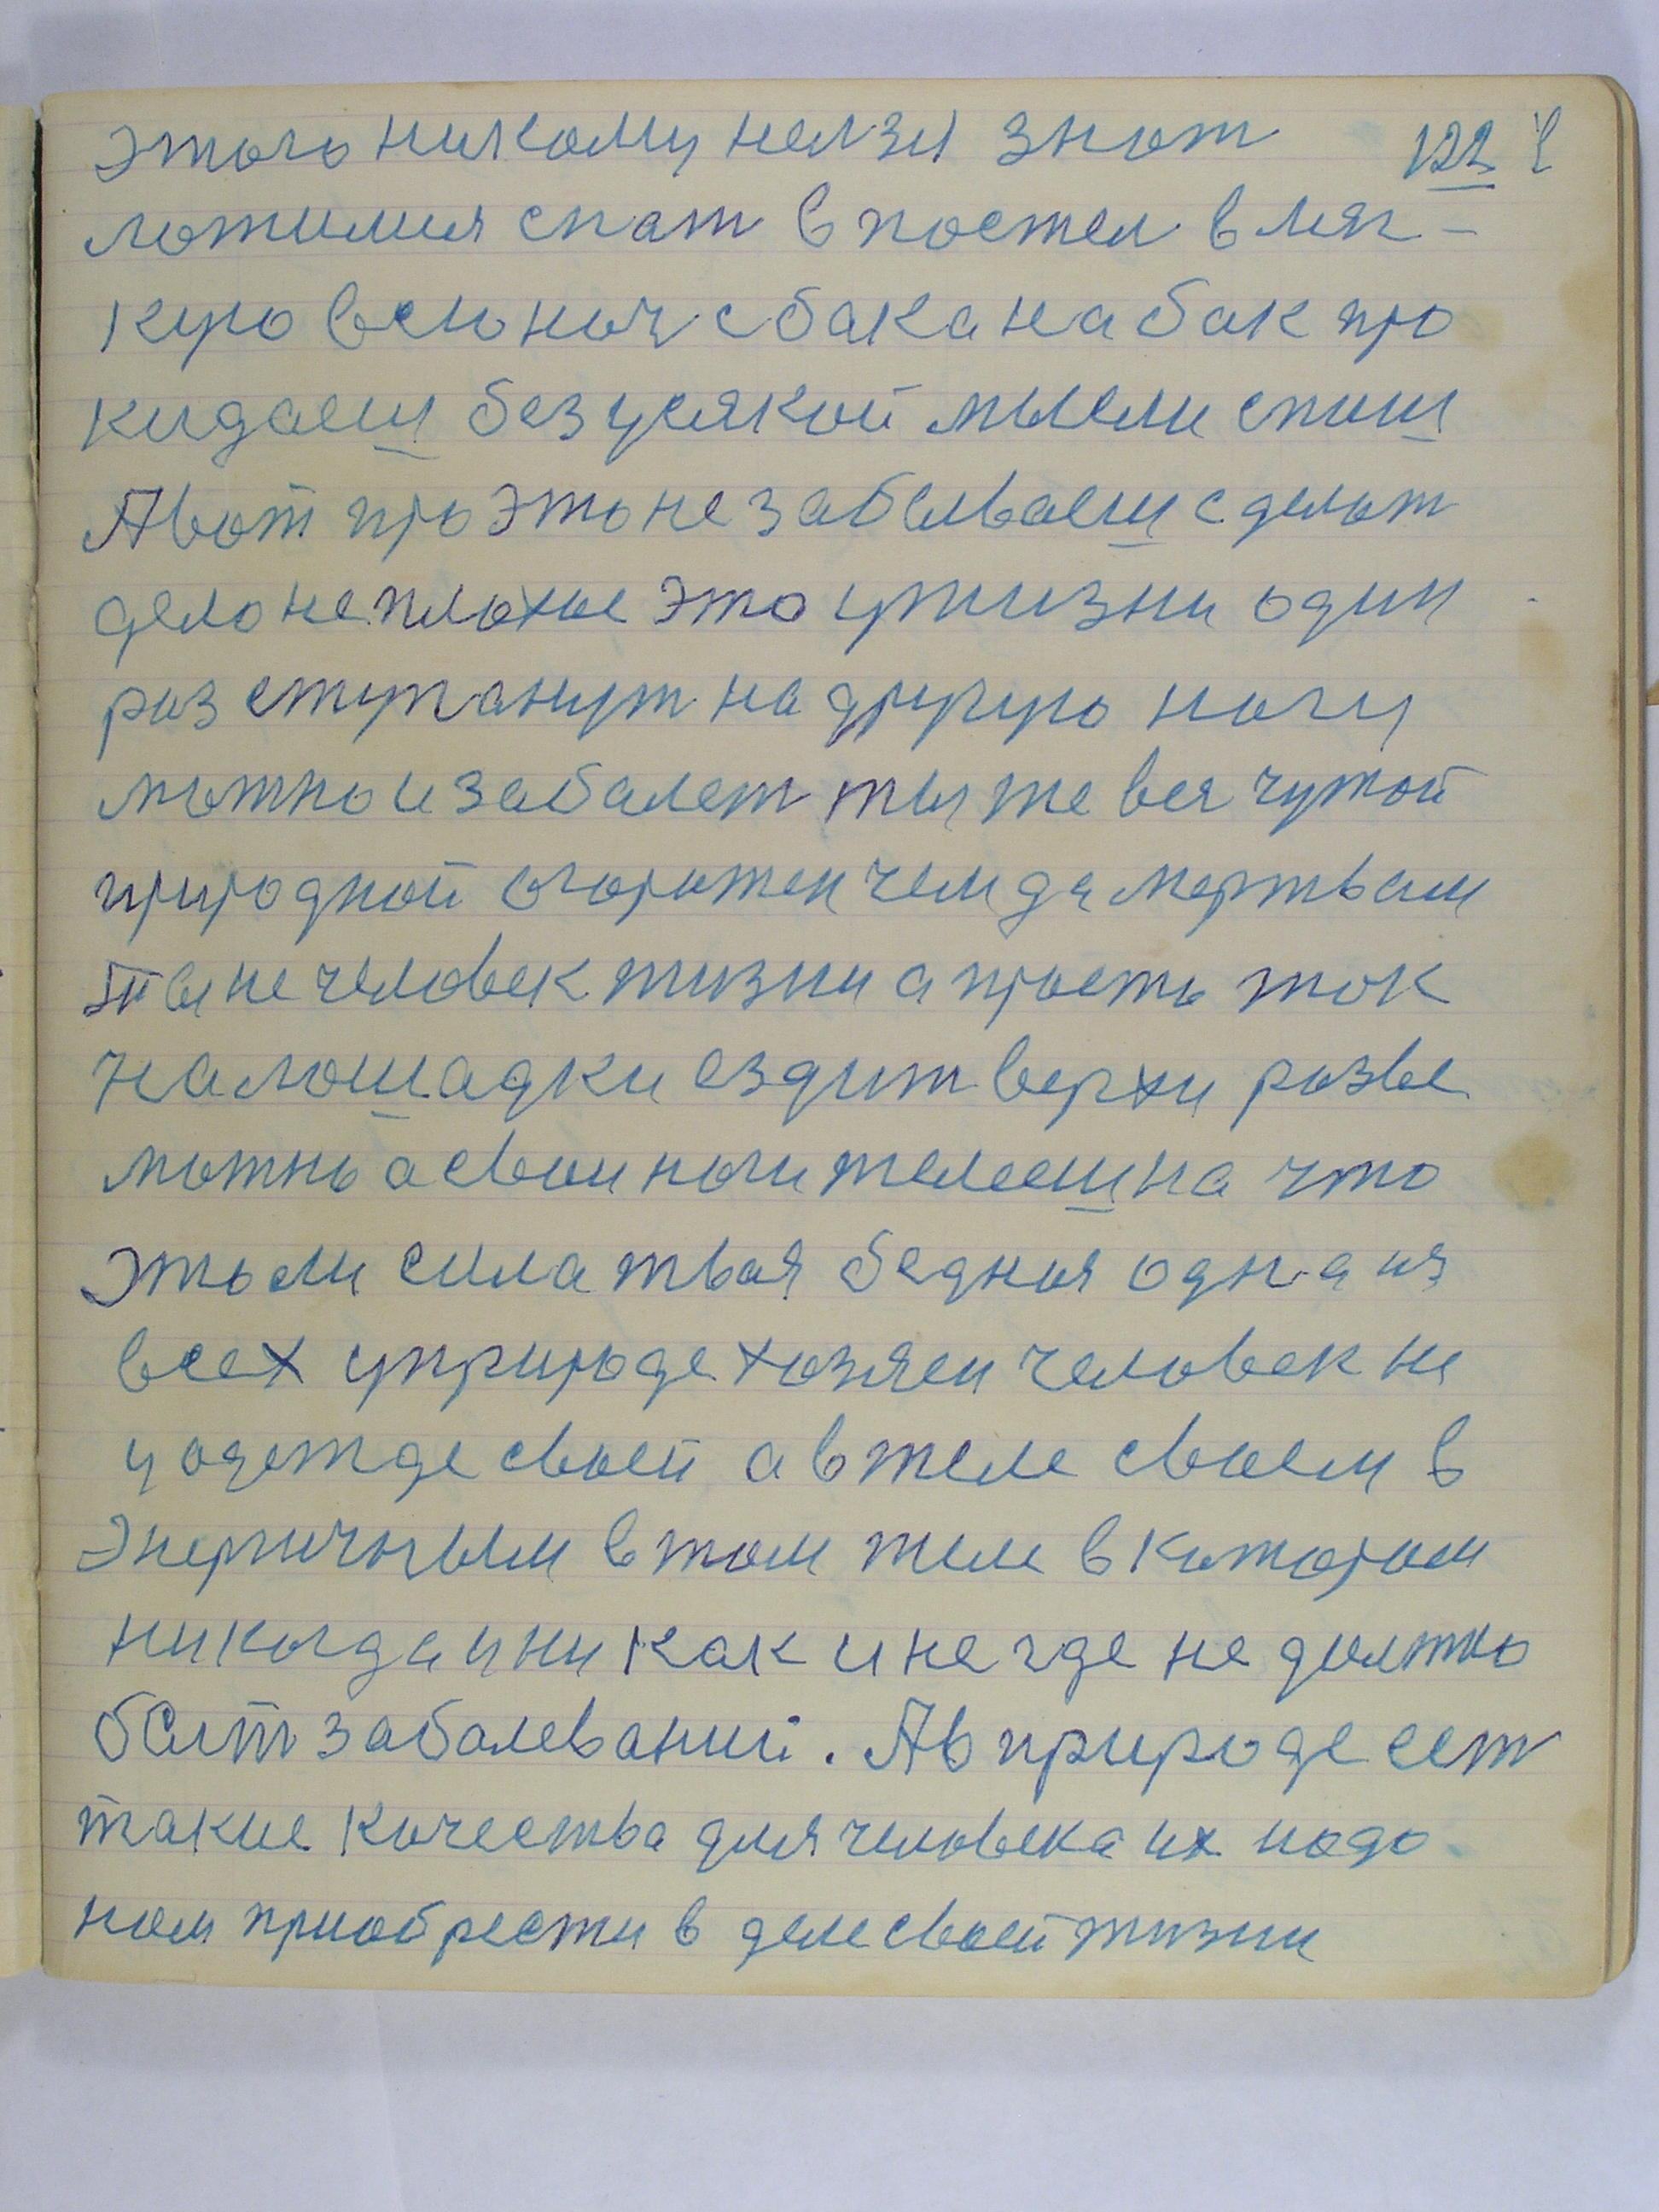 этого никому нелзя знат 122
ложимия спат в постел в мяг-
кую всю ноч с бака на бак про
кидаеш без усякой мысли спиш
А вот про это не забываеш сделат
дело не плохое это у жизни один
раз ступанут на другую ногу
можно и забалет ты же вся чужой
природной огорожен чем да мертвам
Ты не человек жизни а прость так
на лошадки ездит верхи разве
можно а свои ноги жалееш на что
это ли сила твоя бедная одна из
всех уприроде хозяен человек не
у одежде своей а в теле своем в
энергичным в том теле в котором
никогда и ни как и не где не должно
быт заболеваний. А в природе ест
такие качества для человека их надо
нам приобрести в деле своей жизни